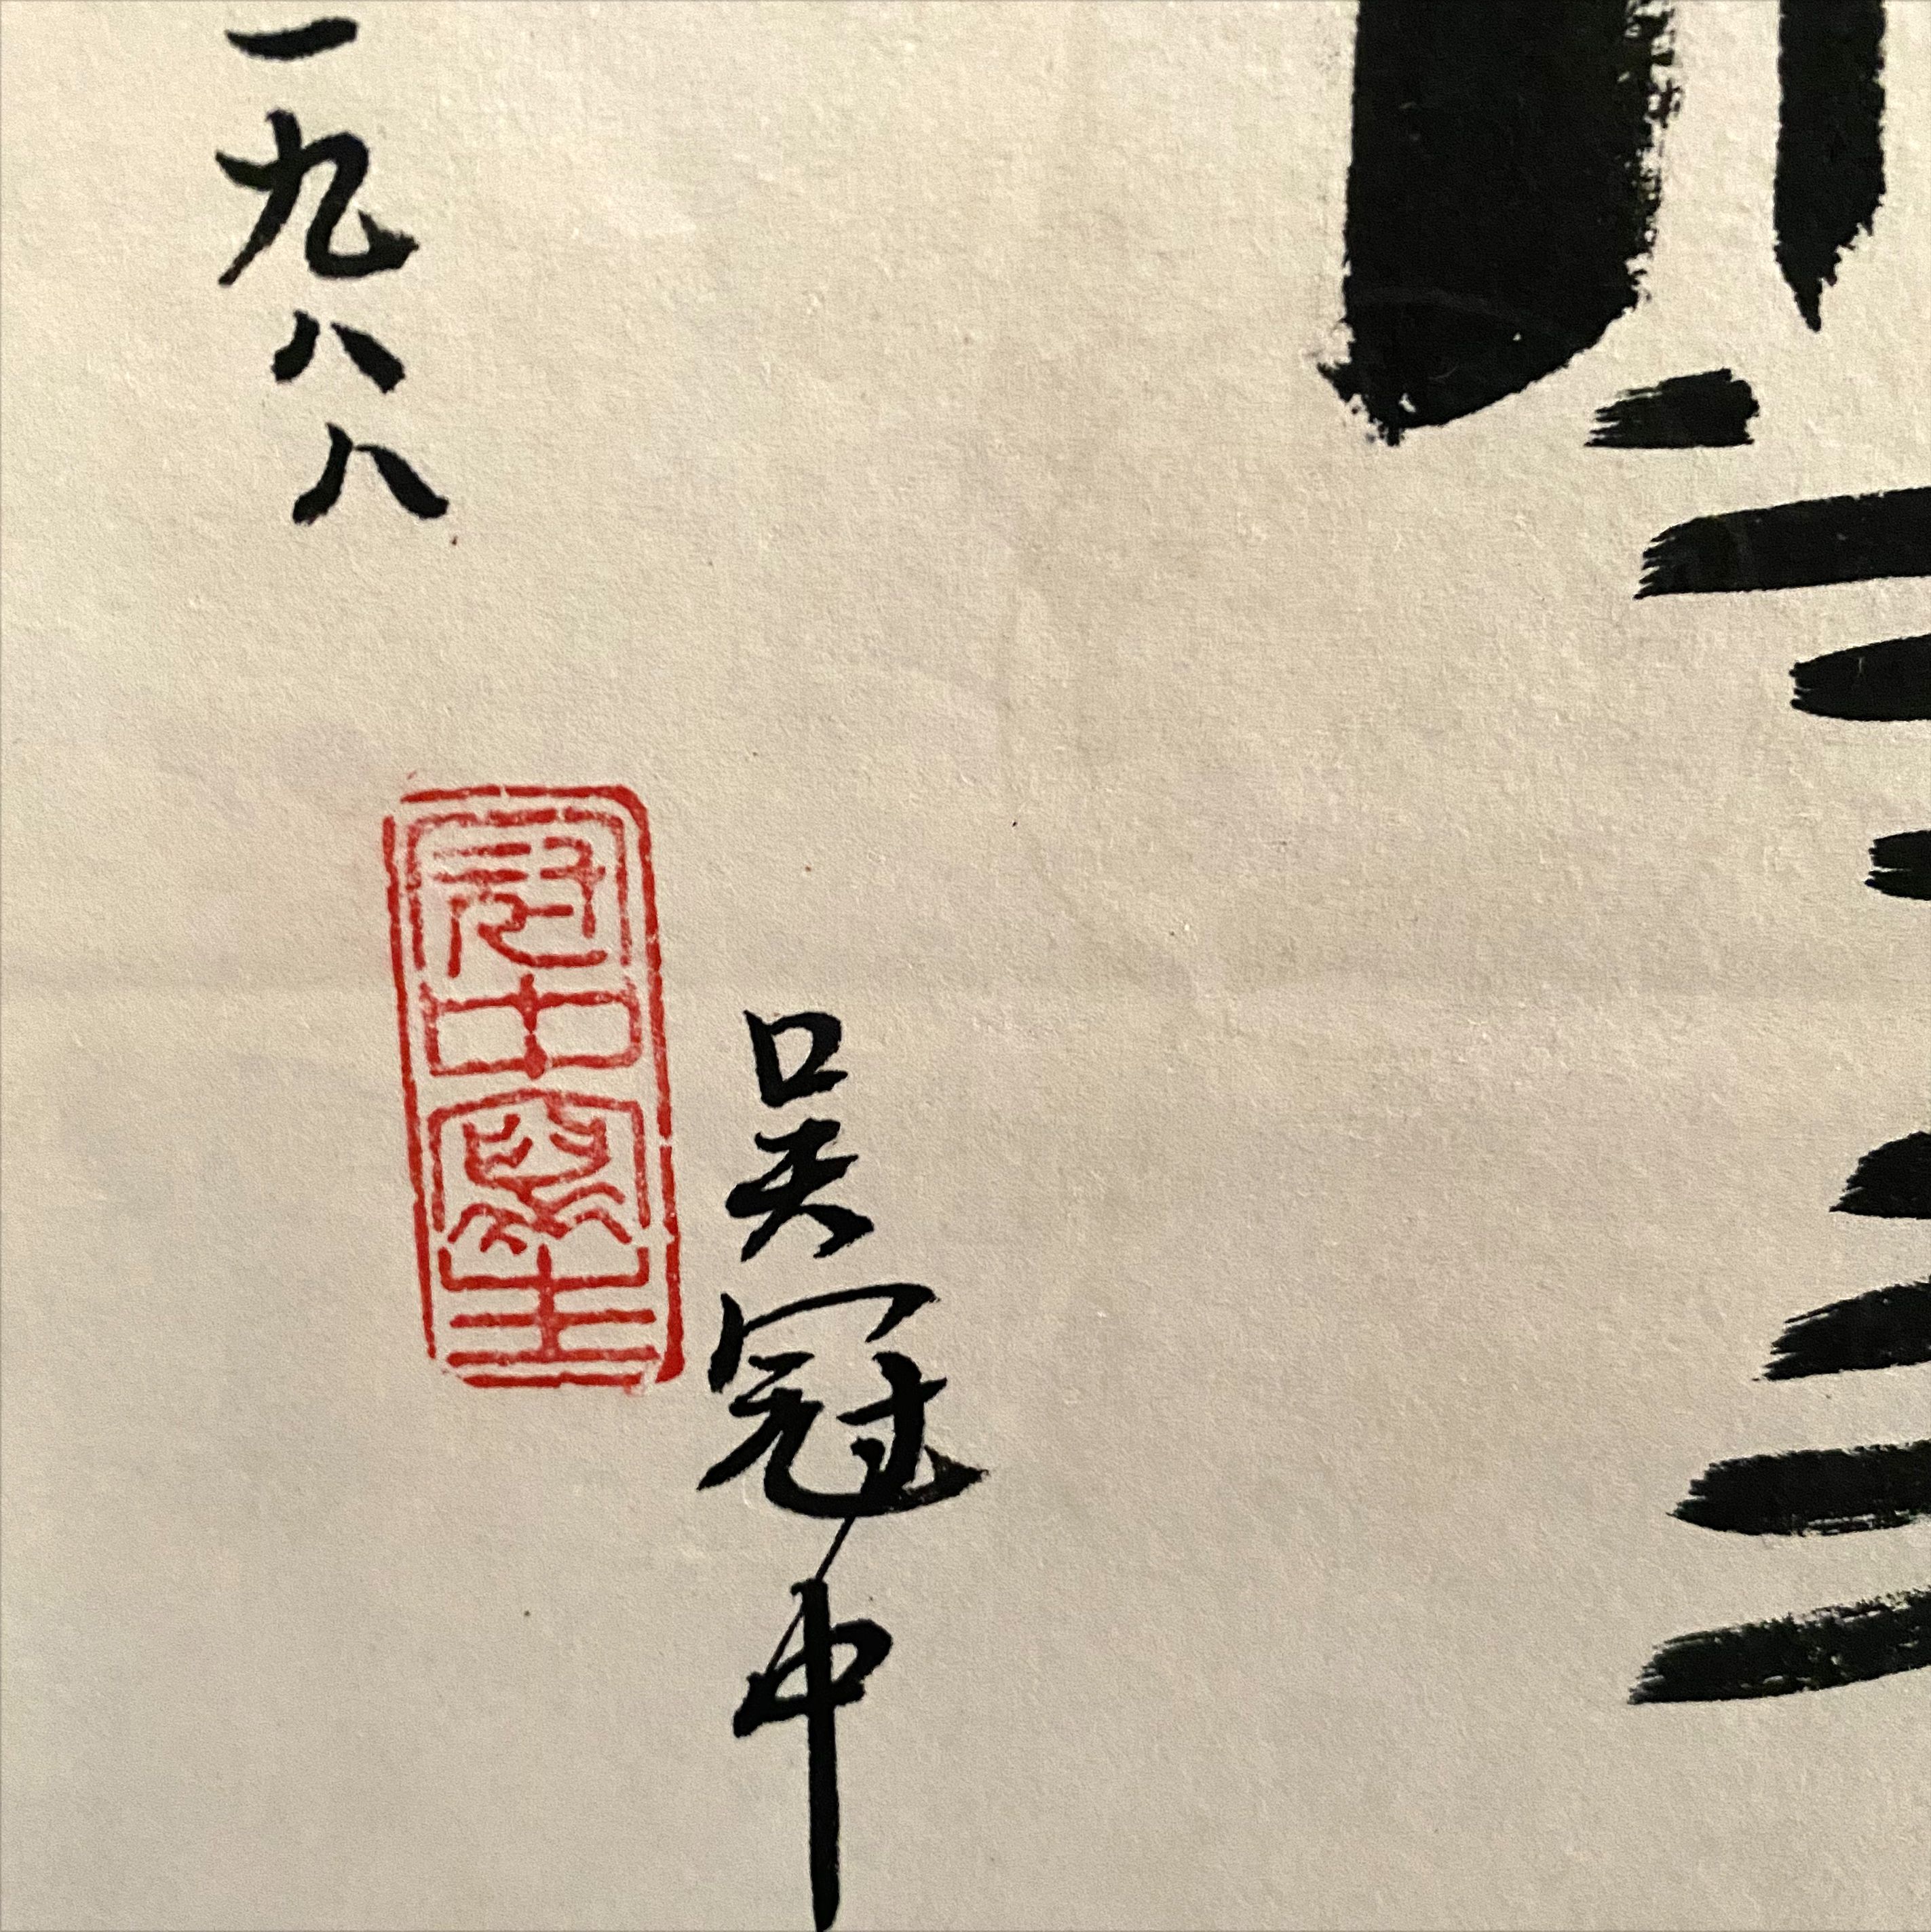 吴冠中
冠中寫生
一九八八